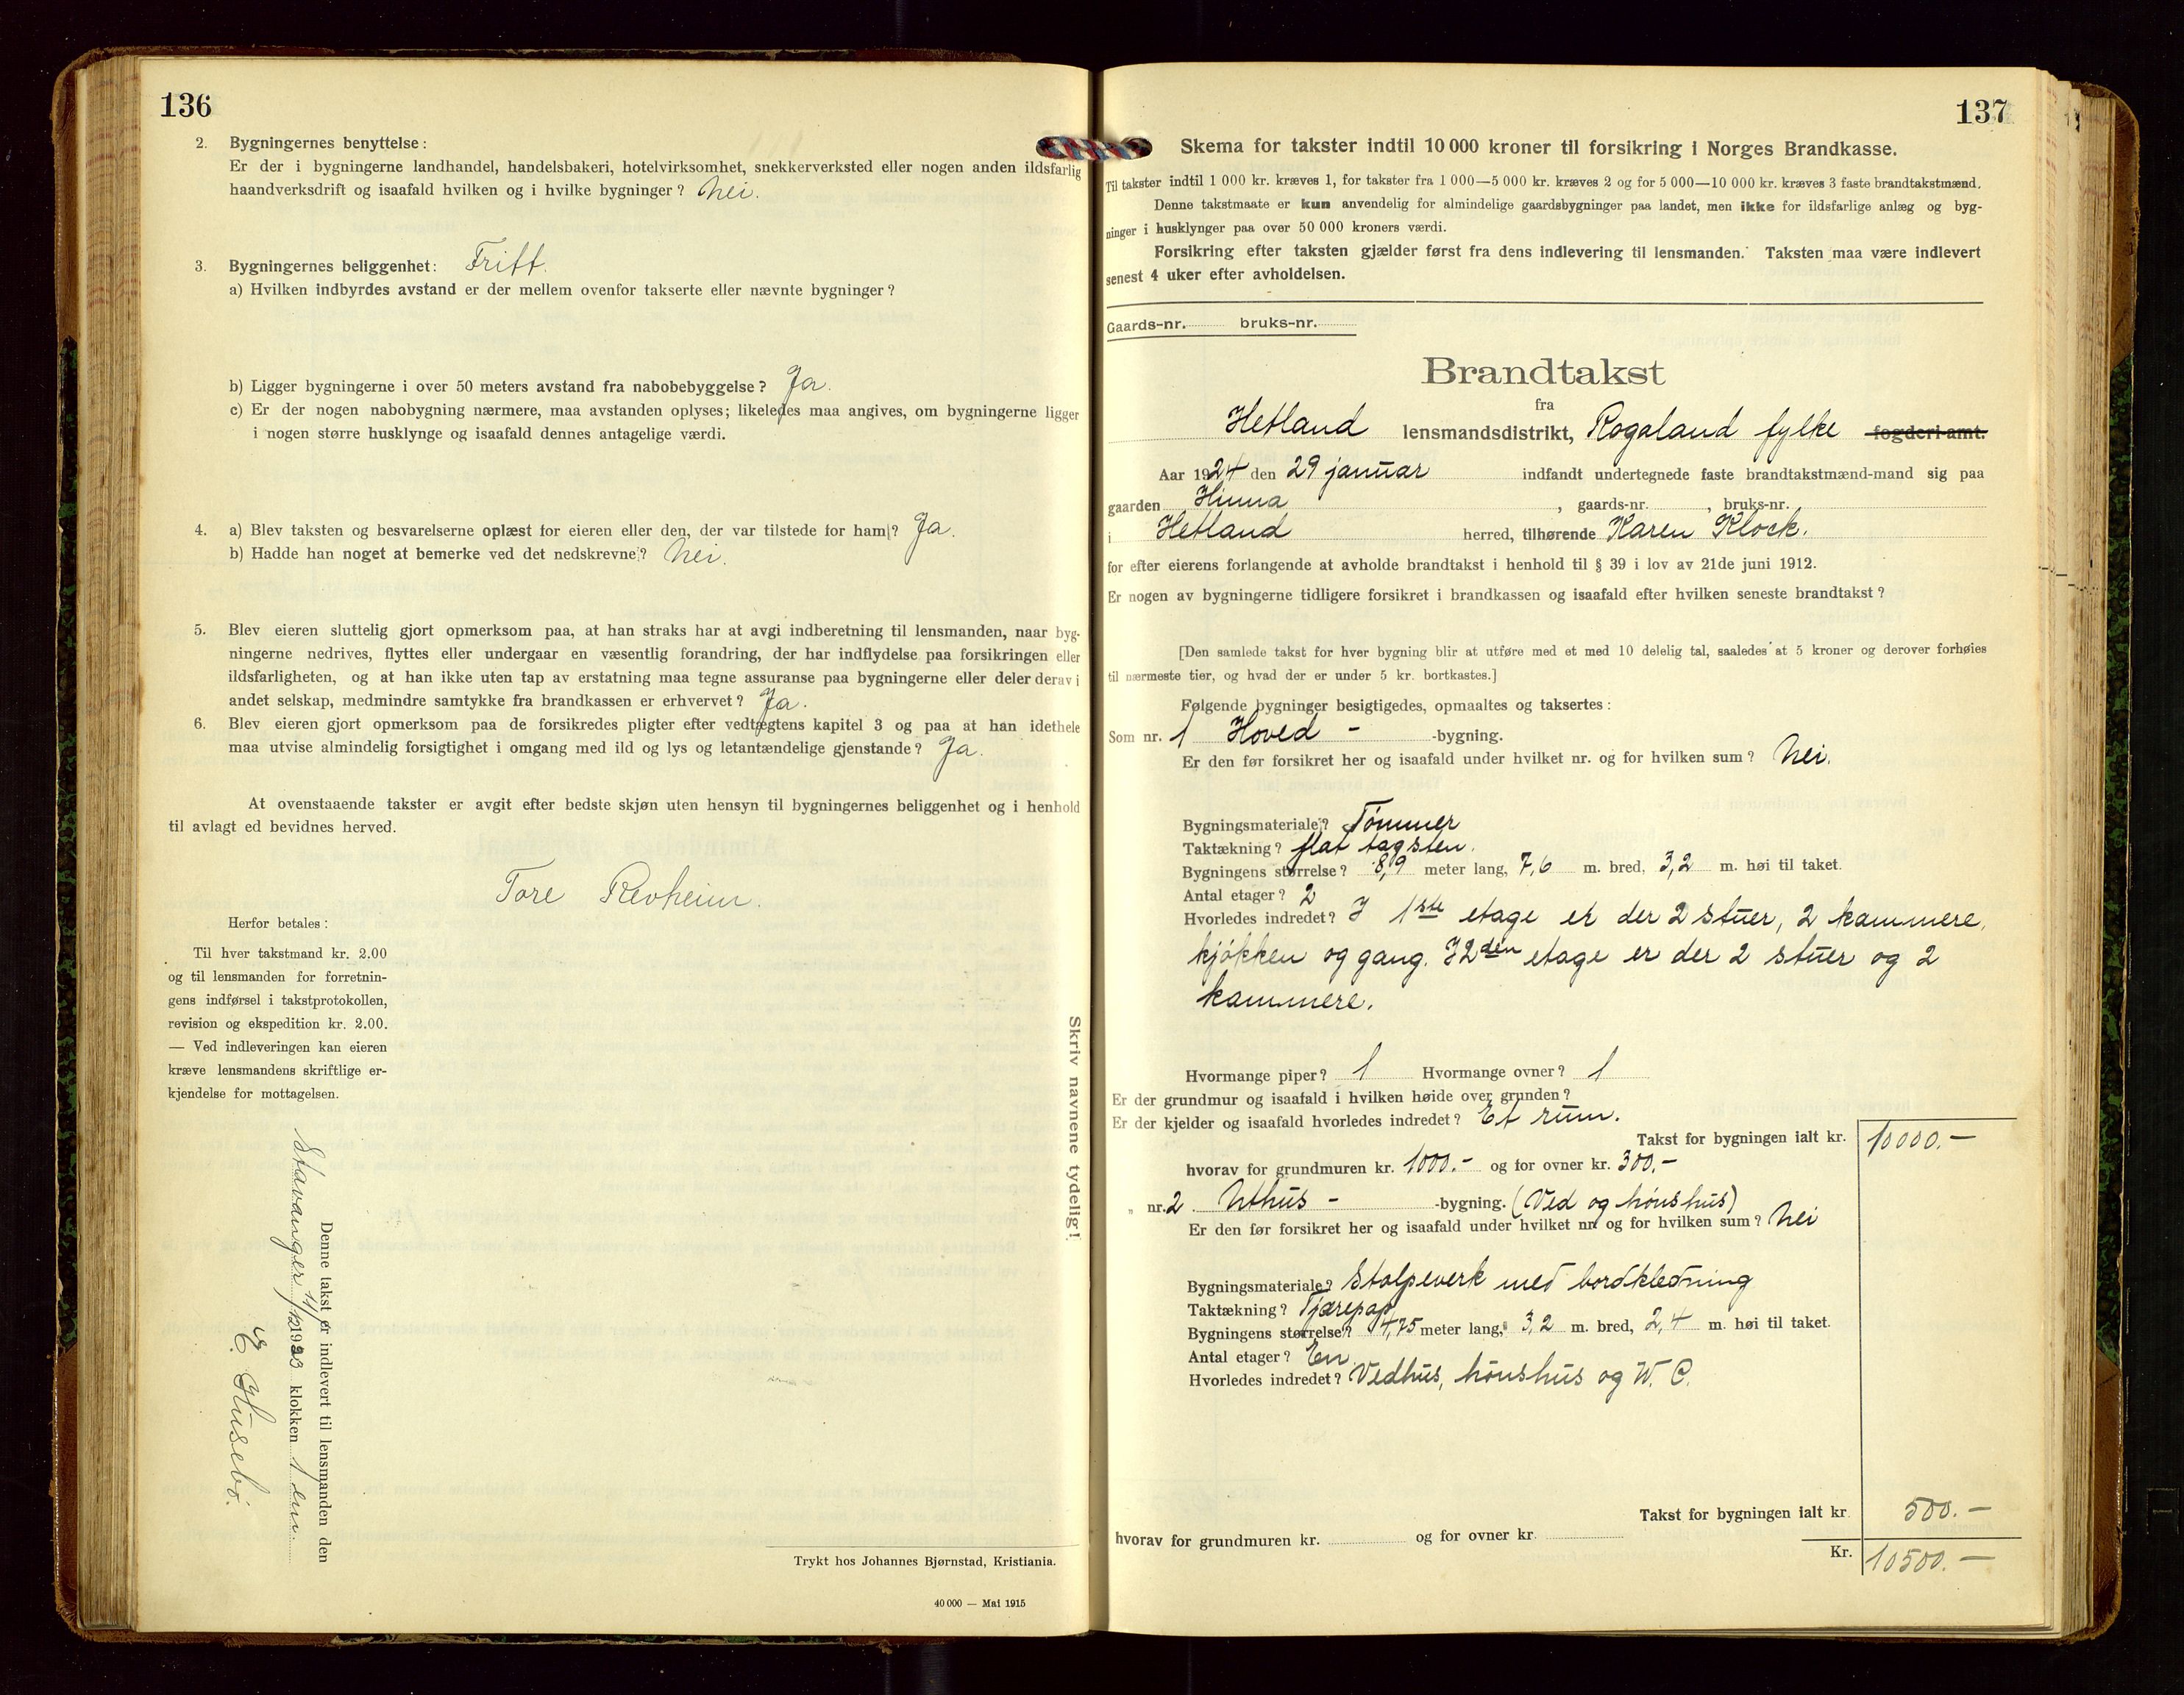 136
2. Bygningernes benyttelse:
Er der i bygningerne landhandel, handelsbakeri, hotelvirksomhet, snekkerverksted eller nogen anden ildsfarlig
haandverksdrift og isaafald hvilken og i hvilke bygninger? Nei.
3. Bygningernes beliggenhet: Fritt.
a) Hvilken indbyrdes avstand er der mellem ovenfor takserte eller nævnte bygninger?
b) Ligger bygningerne i over 50 meters avstand fra nabobebyggelse? Ja.
c) Er der nogen nabobygning nærmere, maa avstanden oplyses; likeledes maa angives, om bygningerne ligger
i nogen større husklynge og isaafald dennes antagelige værdi.
4. a) Blev taksten og besvarelserne oplæst for eieren eller den, der var tilstede for ham? Ja.
b) Hadde han noget at bemerke ved det nedskrevne? Nei.
5. Blev eieren sluttelig gjort opmerksom paa, at han straks har at avgi indberetning til lensmanden, naar byg-
ningerne nedrives, flyttes eller undergaar en væsentlig forandring, der har indflydelse paa forsikringen eller
ildsfarligheten, og at han ikke uten tap av erstatning maa tegne assuranse paa bygningerne eller deler derav i
andet selskap, medmindre samtykke fra brandkassen er erhvervet? Ja.
6. Blev eieren gjort opmerksom paa de forsikredes pligter efter vedtægtens kapitel 3 og paa at han idethele
maa utvise almindelig forsigtighet i omgang med ild og lys og letantændelige gjenstande? Ja.
At ovenstaaende takster er avgit efter bedste skjøn uten hensyn til bygningernes beliggenhet og i henhold
til avlagt ed bevidnes herved.
Tore Revheim.
Herfor betales:
Til hver takstmand kr. 2.00
og til lensmanden for forretnin-
gens indførsel i takstprotokollen,
revision og ekspedition kr. 2.00.
— Ved indleveringen kan eieren
kræve lensmandens skriftlige er-
kjendelse for mottagelsen.
Denne takst er indlevert til lensmanden den
Stavanger 11/12 1923 klokken 1 em.
E. Husebø.
Skriv navnene tydelig!
Trykt hos Johannes Bjørnstad, Kristiania.
40 000 — Mai 1915
137
Skema for takster indtil 10 000 kroner til forsikring i Norges Brandkasse.
Til takster indtil 1 000 kr. kræves 1, for takster fra 1 000—5 000 kr. kræves 2 og for 5 000—10 000 kr. kræves 3 faste brandtakstmænd.
Denne takstmaate er kun anvendelig for almindelige gaardsbygninger paa landet, men ikke for ildsfarlige anlæg og byg-
ninger i husklynger paa over 50 000 kroners værdi.
Forsikring efter taksten gjælder først fra dens indlevering til lensmanden. Taksten maa være indlevert
senest 4 uker efter avholdelsen.
Gaards-nr. bruks-nr.
Brandtakst
fra
Hetland lensmandsdistrikt, Rogaland fylke fogderi-amt.
Aar 1924 den 29 januar indfandt undertegnede faste brandtakstmænd-mand sig paa
gaarden Hinna, gaards-nr. , bruks-nr.
i Hetland herred, tilhørende Karen Klock.
for efter eierens forlangende at avholde brandtakst i henhold til § 39 i lov av 21de juni 1912.
Er nogen av bygningerne tidligere forsikret i brandkassen og isaafald efter hvilken seneste brandtakst?
[Den samlede takst for hver bygning blir at utføre med et med 10 delelig tal, saaledes at 5 kroner og derover forhøies
til nærmeste tier, og hvad der er under 5 kr. bortkastes.]
Følgende bygninger besigtigedes, opmaaltes og taksertes:
Som nr. 1 Hoved - -bygning.
Er den før forsikret her og isaafald under hvilket nr. og for hvilken sum? Nei.
Bygningsmateriale? Tømmer
Taktækning? flat tagsten.
Bygningens størrelse? 8,9 meter lang, 7,6 m. bred, 3,2 m. høi til taket.
Antal etager? 2
Hvorledes indredet? I 1ste etage er der 2 stuer, 2 kammere,
kjøkken og gang. I 2den etage er der 2 stuer og 2
kammere.
Hvormange piper? 1 Hvormange ovner? 1
Er der grundmur og isaafald i hvilken høide over grunden?
Er der kjelder og isaafald hvorledes indredet? Et rum.
Takst for bygningen ialt kr. 10000.—
hvorav for grundmuren kr. 1000.- og for ovner kr. 300.-
„ nr. 2 Uthus - -bygning. (Ved og hønshus)
Er den før forsikret her og isaafald under hvilket nr. og for hvilken sum? Nei
Bygningsmateriale? Stolpeverk med bordklædning
Taktækning? Tjærepap
Bygningens størrelse? 4,75 meter lang, 3,2 m. bred, 2,4 m. høi til taket.
Antal etager? En.
Hvorledes indredet? Vedhus, hønshus og W. C.
Takst for bygningen ialt kr. 500.—
hvorav for grundmuren kr. og for ovner kr.
Kr. 10500.—